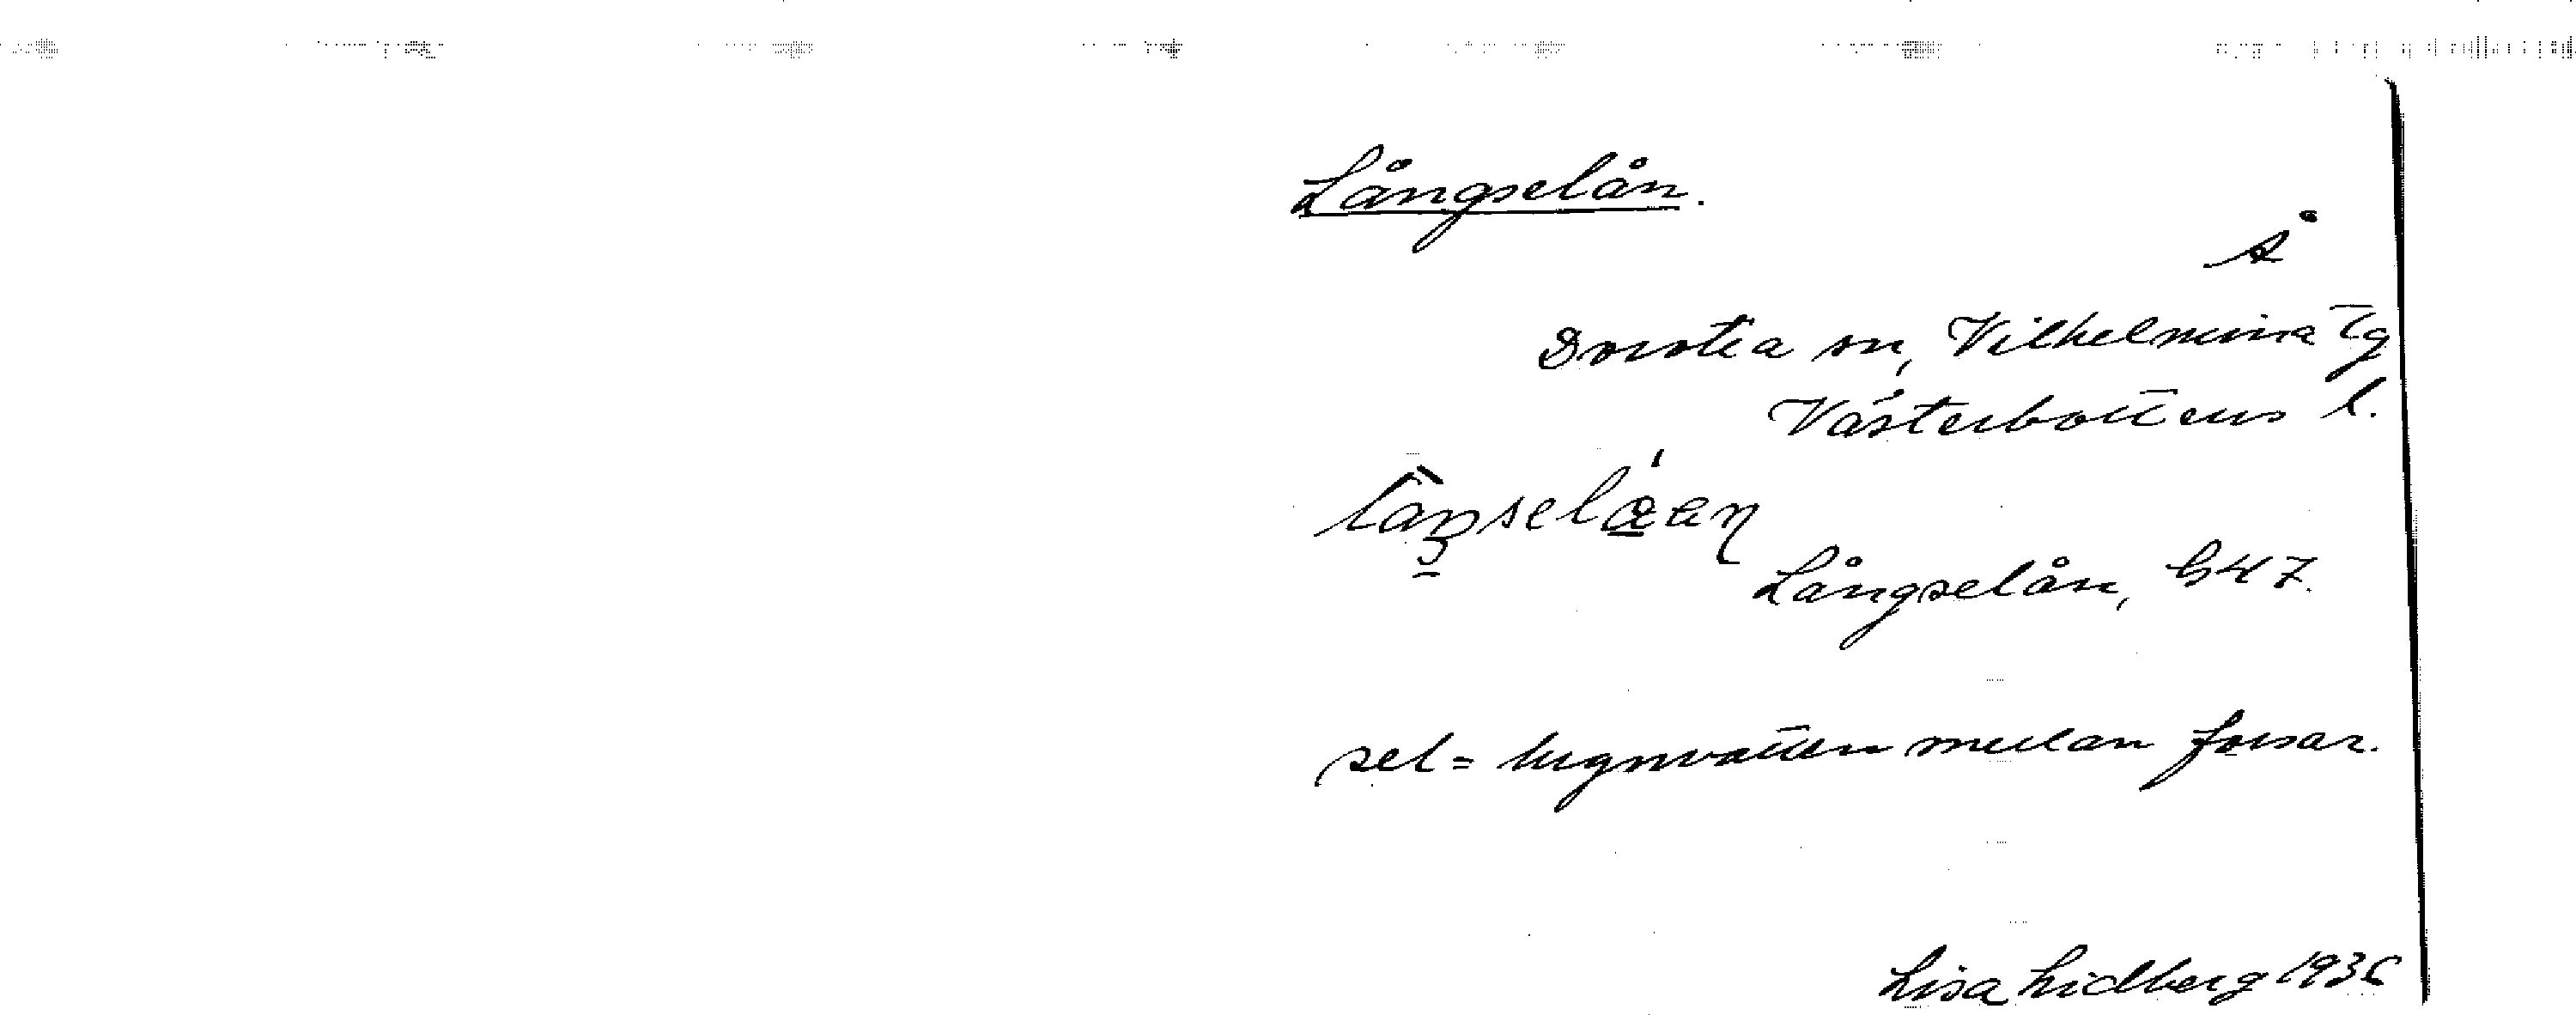 Långselån.
Å
Dorotea sn, Vilhelmina tg
Västerbottens l.
Långselån, G47.
sel = lugnvatten mellan forsar.
Lisa Lidberg 1936